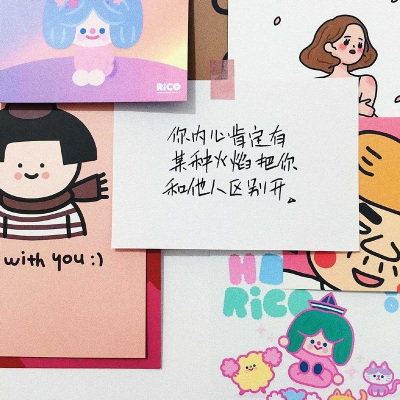 RiCO
你内心肯定有
某种火焰把你
和他人区别开。
with you :)
RiCO